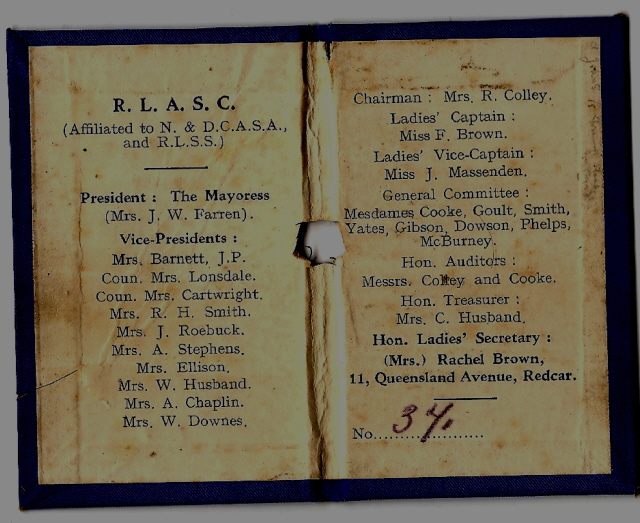 R. L. A. S. C.
(Affiliated to N. & D.C.A.S.A.,
and R.L.S.S.)
President : The Mayoress
(Mrs. J. W. Farren).
Vice-Presidents :
Mrs. Barnett, J.P.
Coun. Mrs. Lonsdale.
Coun. Mrs. Cartwright.
Mrs. R. H. Smith.
Mrs. J. Roebuck.
Mrs. A. Stephens.
Mrs. Ellison.
Mrs. W. Husband.
Mrs. A. Chaplin.
Mrs. W. Downes.
Chairman : Mrs. R. Colley.
Ladies' Captain :
Miss F. Brown.
Ladies' Vice-Captain :
Miss J. Massenden.
General Committee :
Mesdames Cooke, Goult, Smith,
Yates, Gibson, Dowson, Phelps,
McBurney.
Hon. Auditors :
Messrs. Colley and Cooke.
Hon. Treasurer :
Mrs. C. Husband.
Hon. Ladies' Secretary :
(Mrs.) Rachel Brown,
11, Queensland Avenue, Redcar.
No.